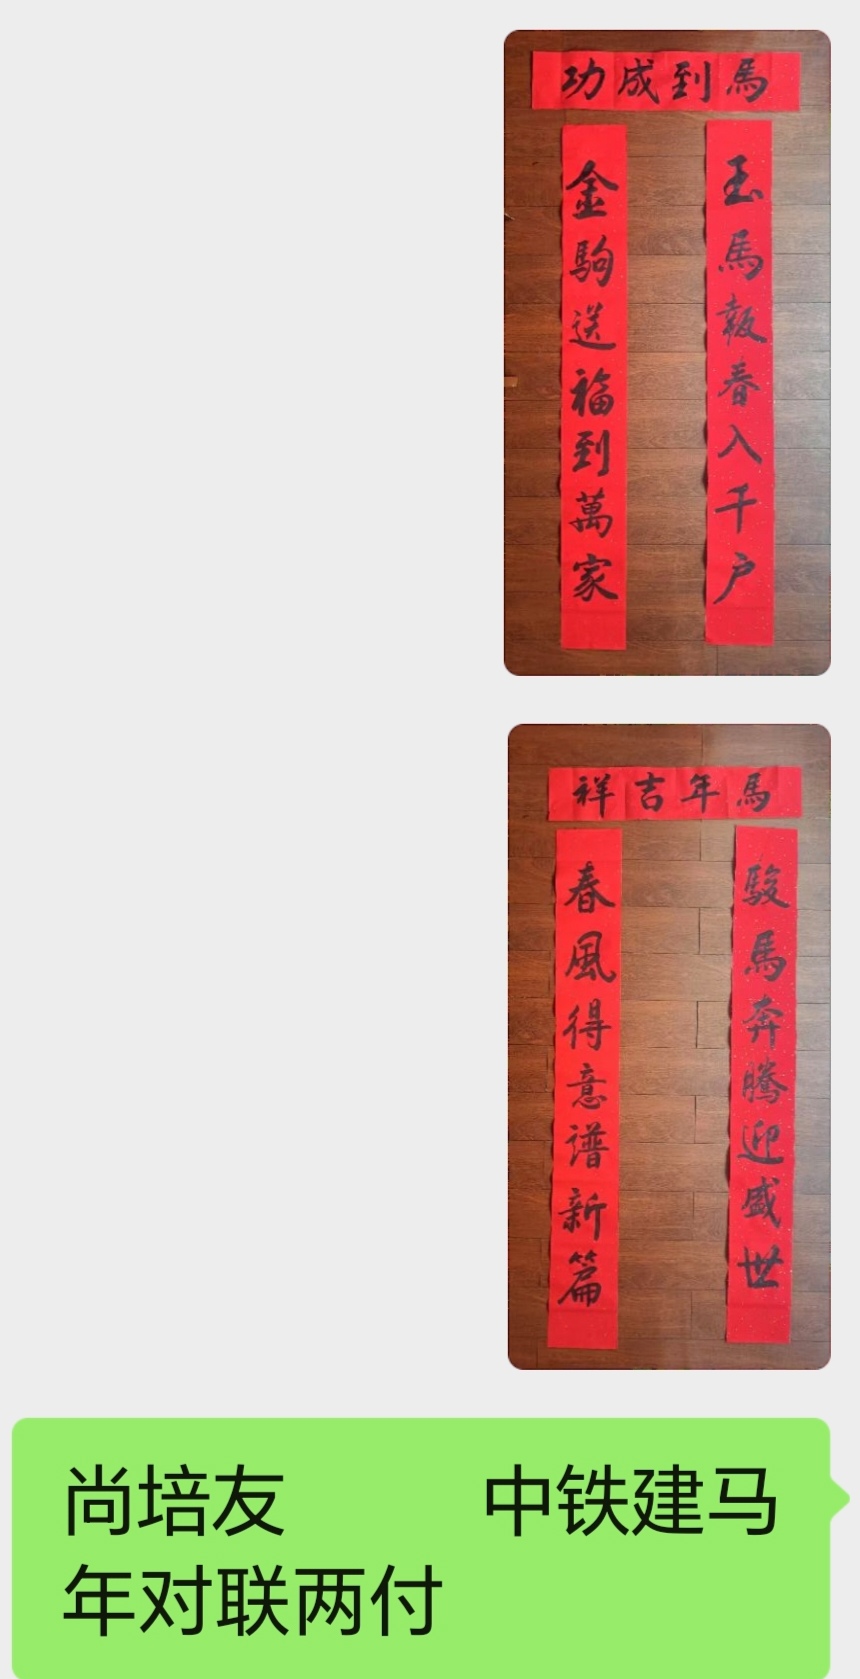 馬到成功
玉馬報春入千户
金駒送福到萬家
馬年吉祥
駿馬奔騰迎盛世
春風得意谱新篇
尚培友 中铁建马
年对联两付